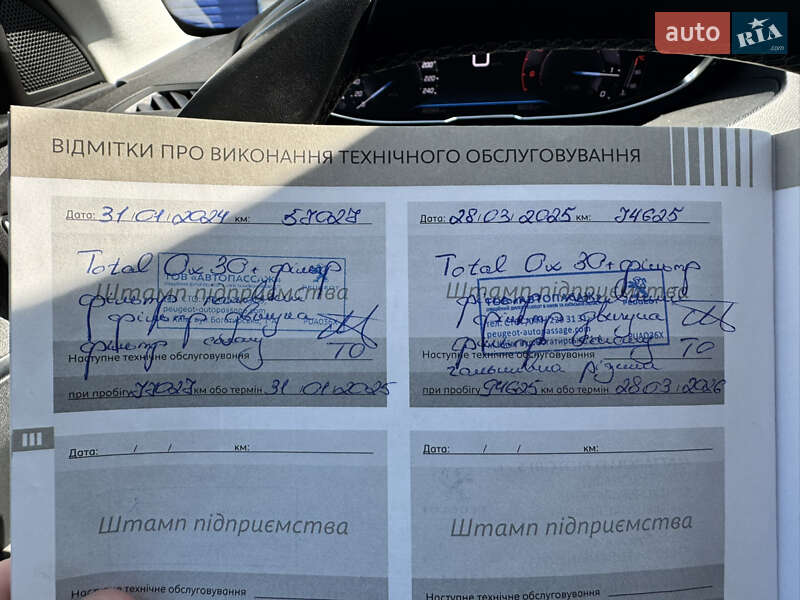 auto RIA .com
200
220
240
ВІДМІТКИ ПРО ВИКОНАННЯ ТЕХНІЧНОГО ОБСЛУГОВУВАННЯ
Дата: 31/01/2024 км: 57027
Total 0x30 + фільтр
ТОВ «АВТОПАССАЖ»
Штамп підприємства
фільтр
peugeot-autopassage.com
фільтр салону
Наступне технічне обслуговування ТО
при пробігу 77027 км або термін 31/01/2025
Дата: 28/03/2025 км: 74625
Total 0x30 + фільтр
Штамп підприємства
peugeot-autopassage.com
Наступне технічне обслуговування ТО
гальмівна рідина
при пробігу 94625 км або термін 28/03/2026
III
Дата: / / км:
Штамп підприємства
Наступне технічне обслуговування
Дата: / / км:
Штамп підприємства
Наступне технічне обслуговування